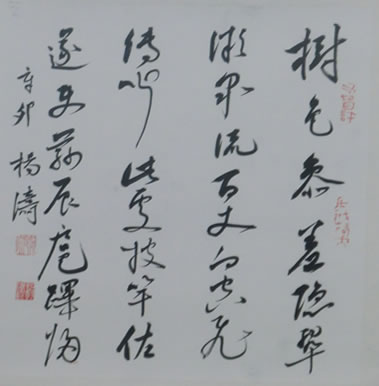 樹色參差隐翠
微泉流百丈向空飛
傳聞此處投竿住
遂使茲辰扈蹕归
辛卯 楊濤